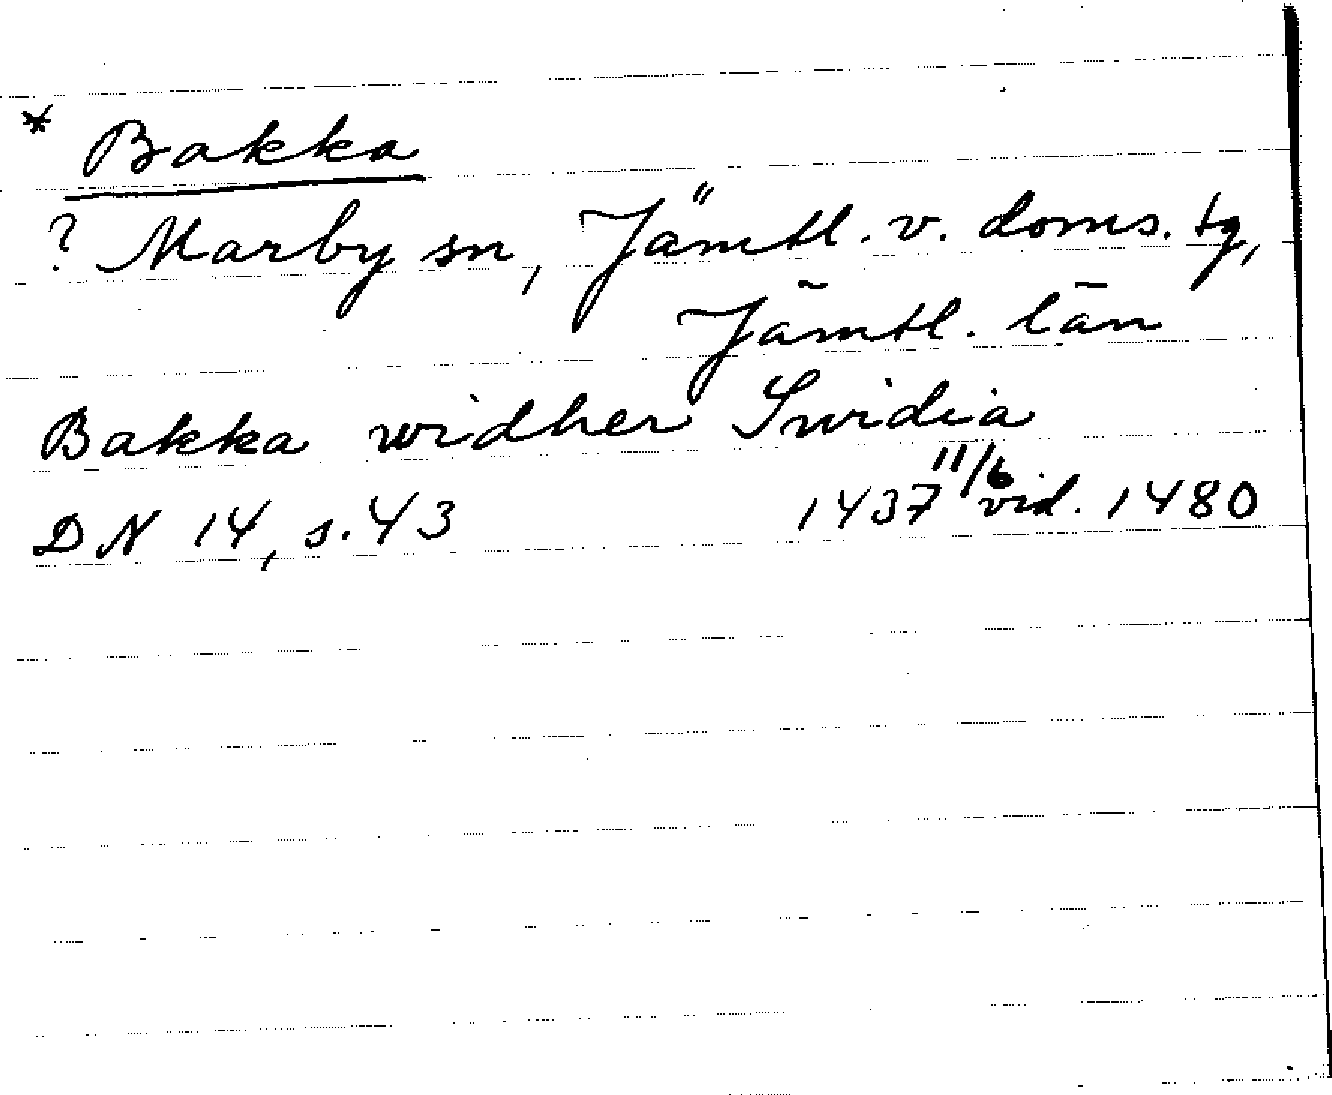 * Bakka
? Marby sn, Jämtl. v. doms. tg,
Jämtl. län
Bakka widher Swidia
DN 14, s. 43 1437 11/6 vid. 1480